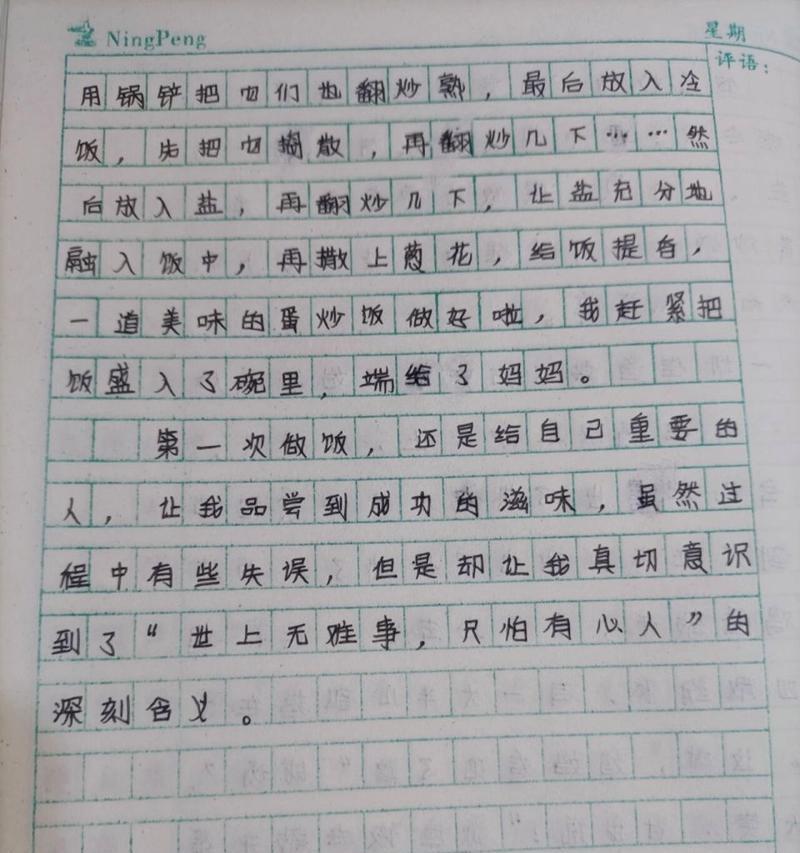 NingPeng
星期
评语:
用锅铲把它们也翻炒熟,最后放入冷
饭,先把它捣散,再翻炒几下……然
后放入盐,再翻炒几下,让盐充分地
融入饭中,再撒上葱花,给饭提香,
一道美味的蛋炒饭做好啦,我赶紧把
饭盛入了碗里,端给了妈妈。
第一次做饭,还是给自己重要的
人,让我品尝到成功的滋味,虽然过
程中有些失误,但是却让我真切意识
到了“世上无难事,只怕有心人”的
深刻含义。